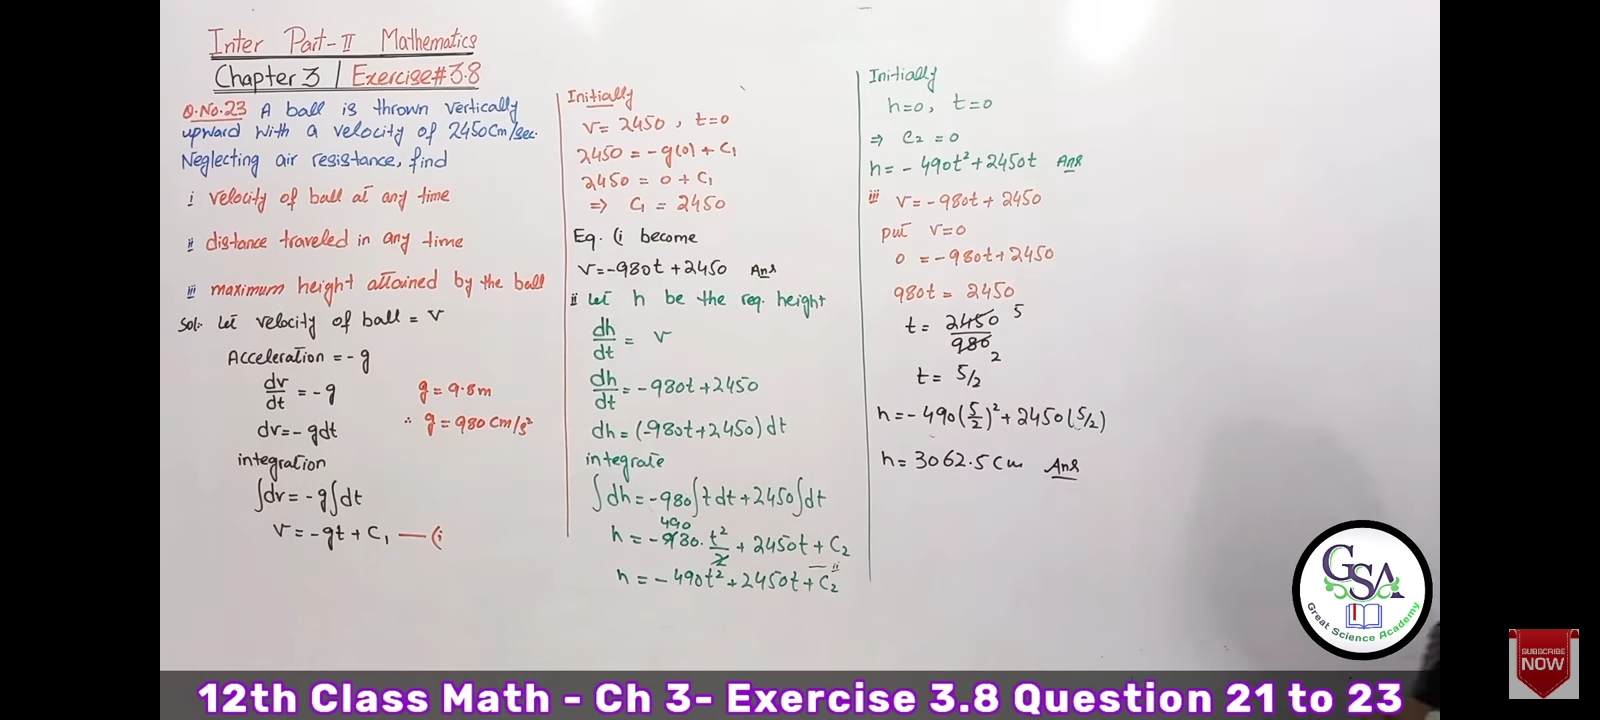 Inter Part-II Mathematics
Chapter 3 | Exercise#3.8
Q.No.23 A ball is thrown vertically
upward with a velocity of 2450cm/sec.
Neglecting air resistance, find
i velocity of ball at any time
ii distance traveled in any time
iii maximum height attained by the ball
Sol:- Let velocity of ball = v
Acceleration = -g
dv/dt = -g
g = 9.8m
dv = -gdt
∴ g = 980 cm/s²
integration
∫dv = -g∫dt
v = -gt + C₁ — (i
Initially
v = 2450 , t=0
2450 = -g(0) + C₁
2450 = 0 + C₁
⇒ C₁ = 2450
Eq. (i become
v = -980t + 2450 Ans
ii Let h be the req. height
dh/dt = v
dh/dt = -980t + 2450
dh = (-980t + 2450) dt
integrate
∫dh = -980∫t dt + 2450∫dt
490
h = -980. t²/2 + 2450t + C₂
— ii
h = - 490t² + 2450t + C₂
Initially
h=0, t=0
⇒ C₂ = 0
h = - 490t² + 2450t Ans
iii v = -980t + 2450
put v=0
0 = -980t + 2450
980t = 2450
t = 2450/980 5
2
t = 5/2
h = - 490(5/2)² + 2450(5/2)
h = 3062.5 cm Ans
GSA
Great Science Academy
SUBSCRIBE
NOW
12th Class Math - Ch 3- Exercise 3.8 Question 21 to 23